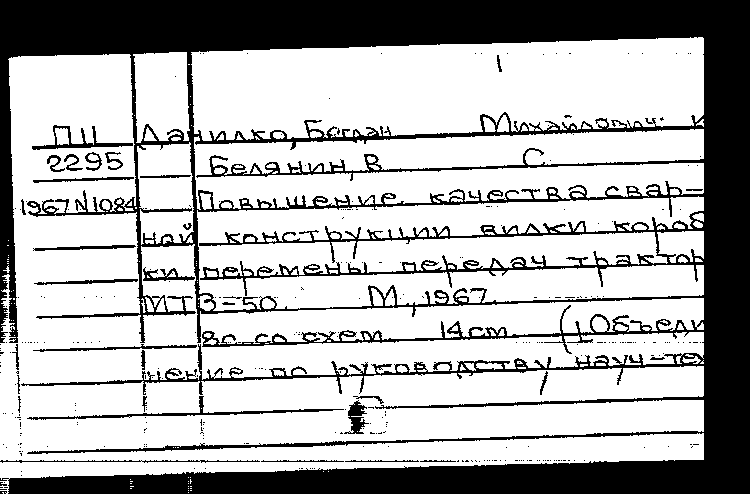 ПII Данилко, Богдан Михайлович и
2295 Белянин, В С.
1967 N 1084 Повышение качества свар-
ной конструкции вилки короб
ки перемены передач трактор
МТЗ-50. М., 1967.
8с со схем. 14 см. (1, Объеди
нение по руководству науч-тех